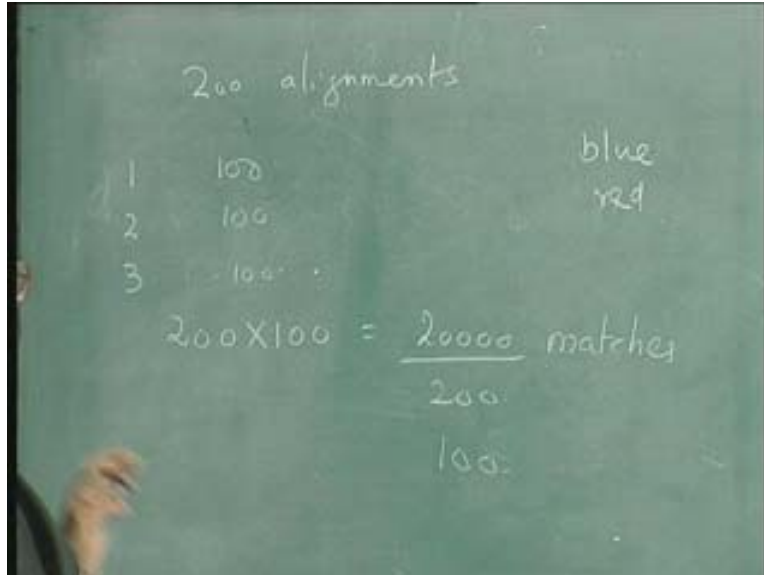 200 alignments
blue
red
1 100
2 100
3 100
200X100 = 20000 matches
200
100